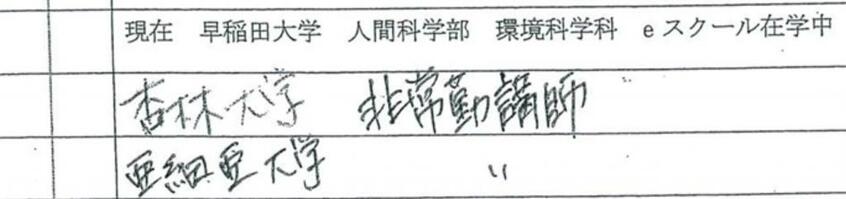 現在 早稲田大学 人間科学部 環境科学科 eスクール在学中
杏林大学 非常勤講師
亜細亜大学 〃